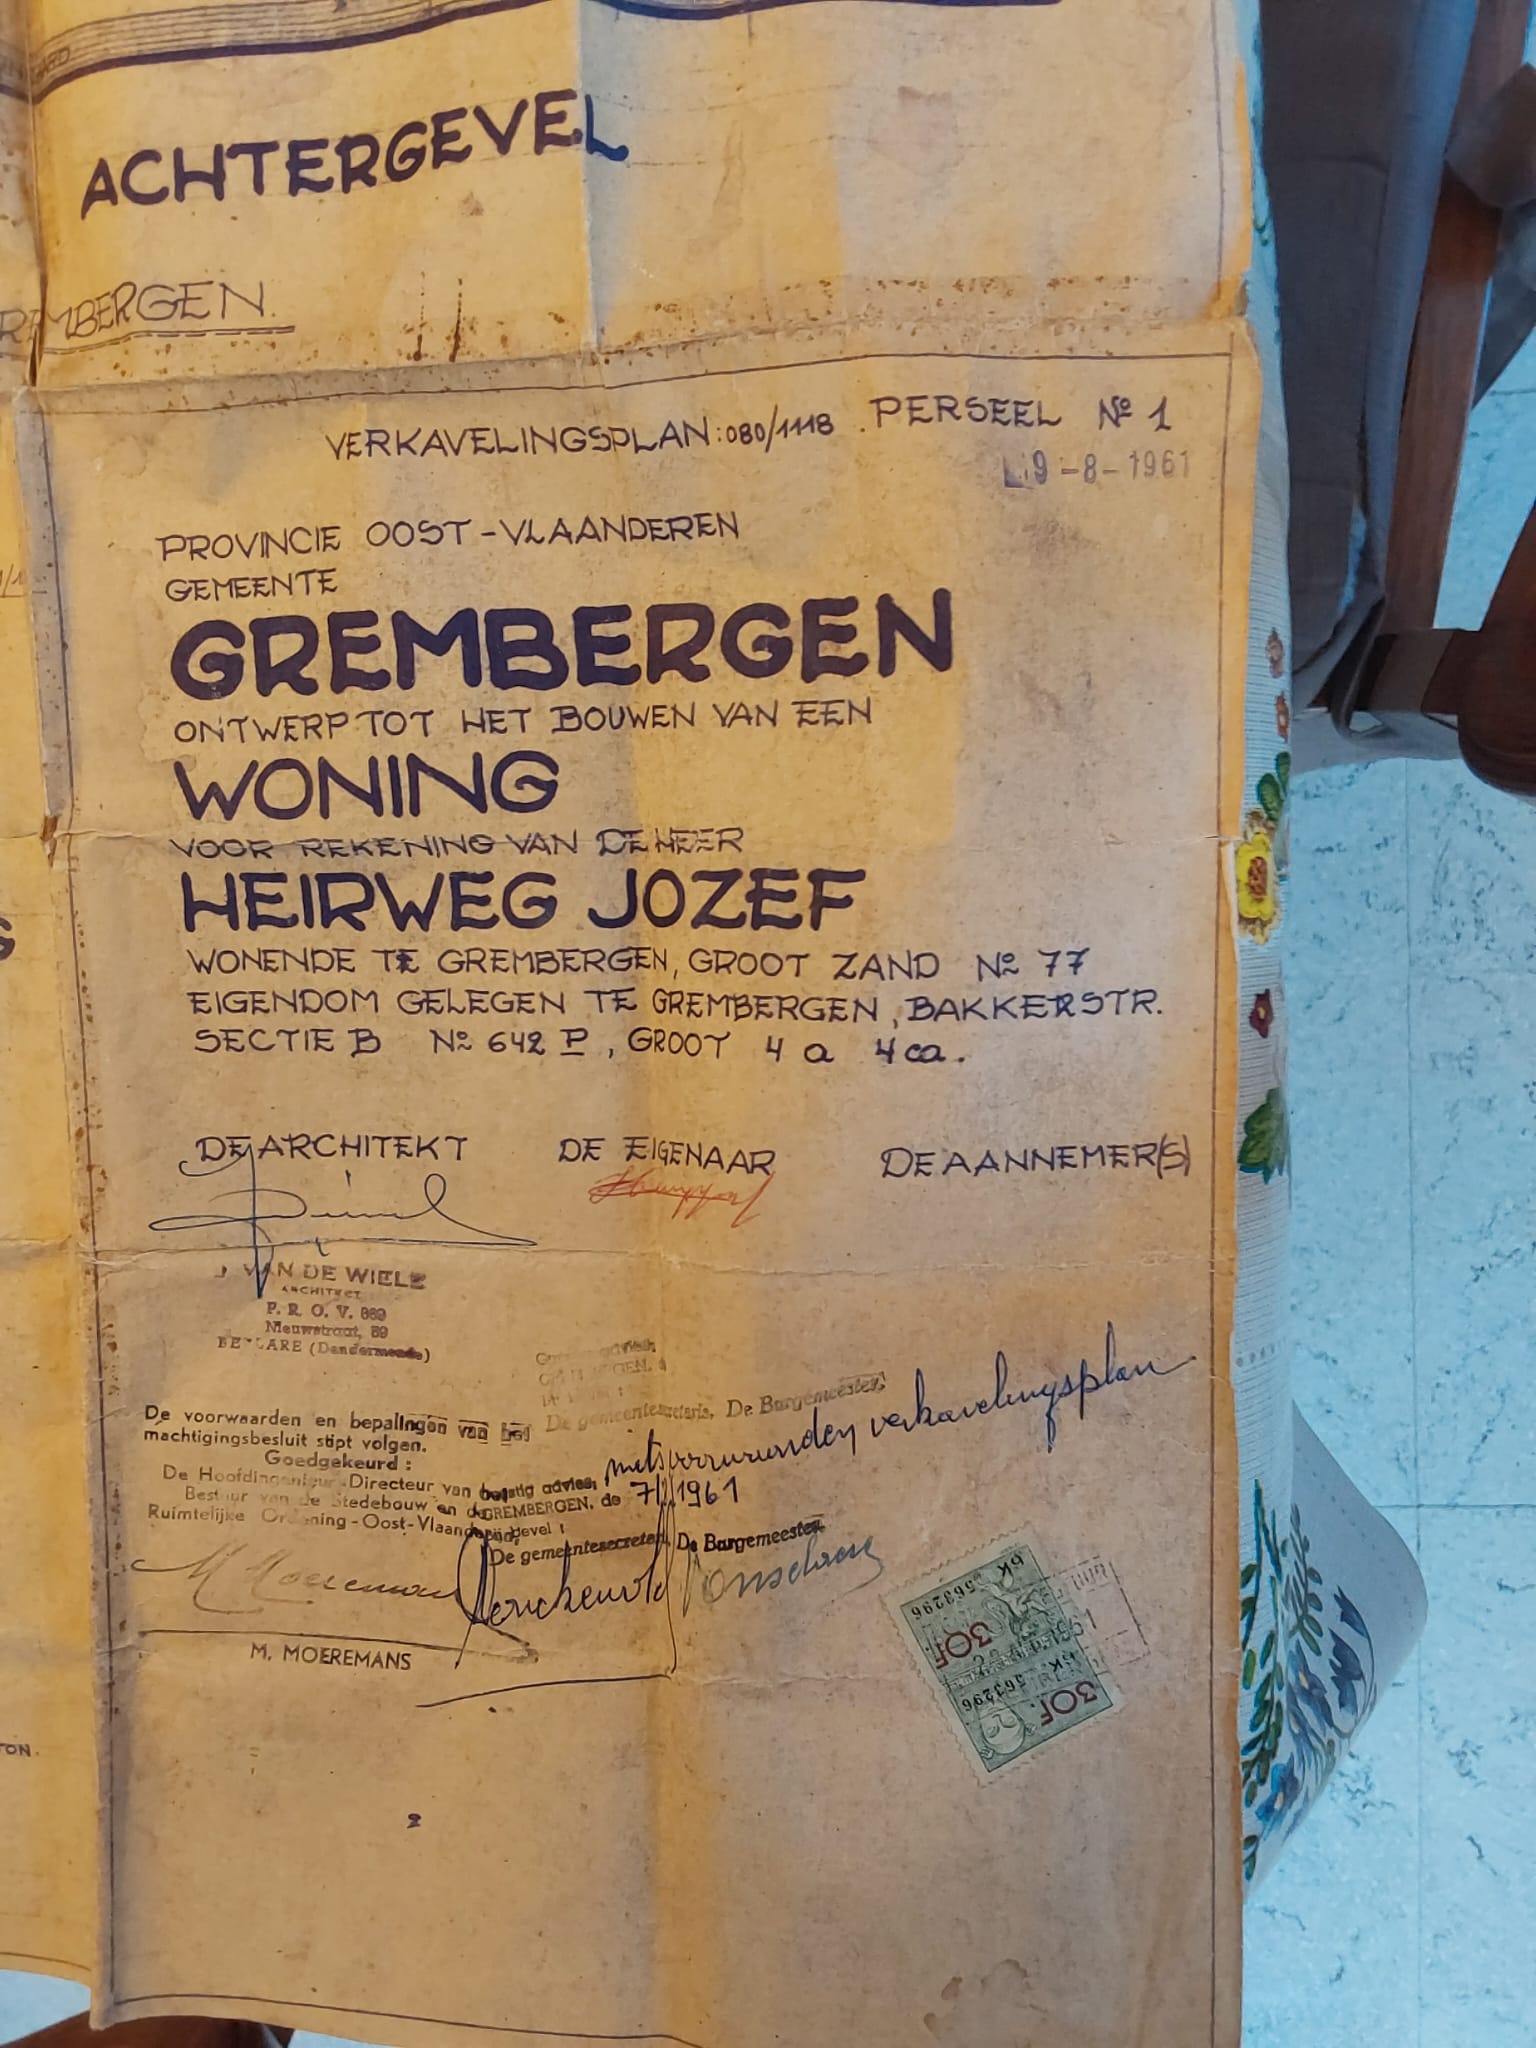 ACHTERGEVEL
REMBERGEN.
VERKAVELINGSPLAN: 080/1118. PERSEEL Nº 1
9-8-1961
PROVINCIE OOST-VLAANDEREN
GEMEENTE
GREMBERGEN
ONTWERP TOT HET BOUWEN VAN EEN
WONING
VOOR REKENING VAN DE HEER
HEIRWEG JOZEF
WONENDE TE GREMBERGEN, GROOT ZAND Nº 77
EIGENDOM GELEGEN TE GREMBERGEN, BAKKERSTR.
SECTIE B Nº 642 P, GROOT 4 a 4 ca.
DE ARCHITEKT DE EIGENAAR DE AANNEMER(S)
J. VAN DE WIELE
ARCHITECT
P. R. O. V. 669
Nieuwstraat, 59
(Dendermonde)
De gemeentesecretaris, De Burgemeester,
De voorwaarden en bepalingen van het
machtigingsbesluit stipt volgen.
Goedgekeurd :
De Hoofdingenieur-Directeur van
Bestuur van de Stedebouw en de
Ruimtelijke Ordening-Oost-Vlaanderen,
Gunstig advies, mits voorwaarden verkavelingsplan
GREMBERGEN, de 7/ /1961
bevel :
De gemeentesecretaris, De Burgemeester,
M. MOEREMANS
BK 563296
30F.
BK 563296
30F.
2
TON.